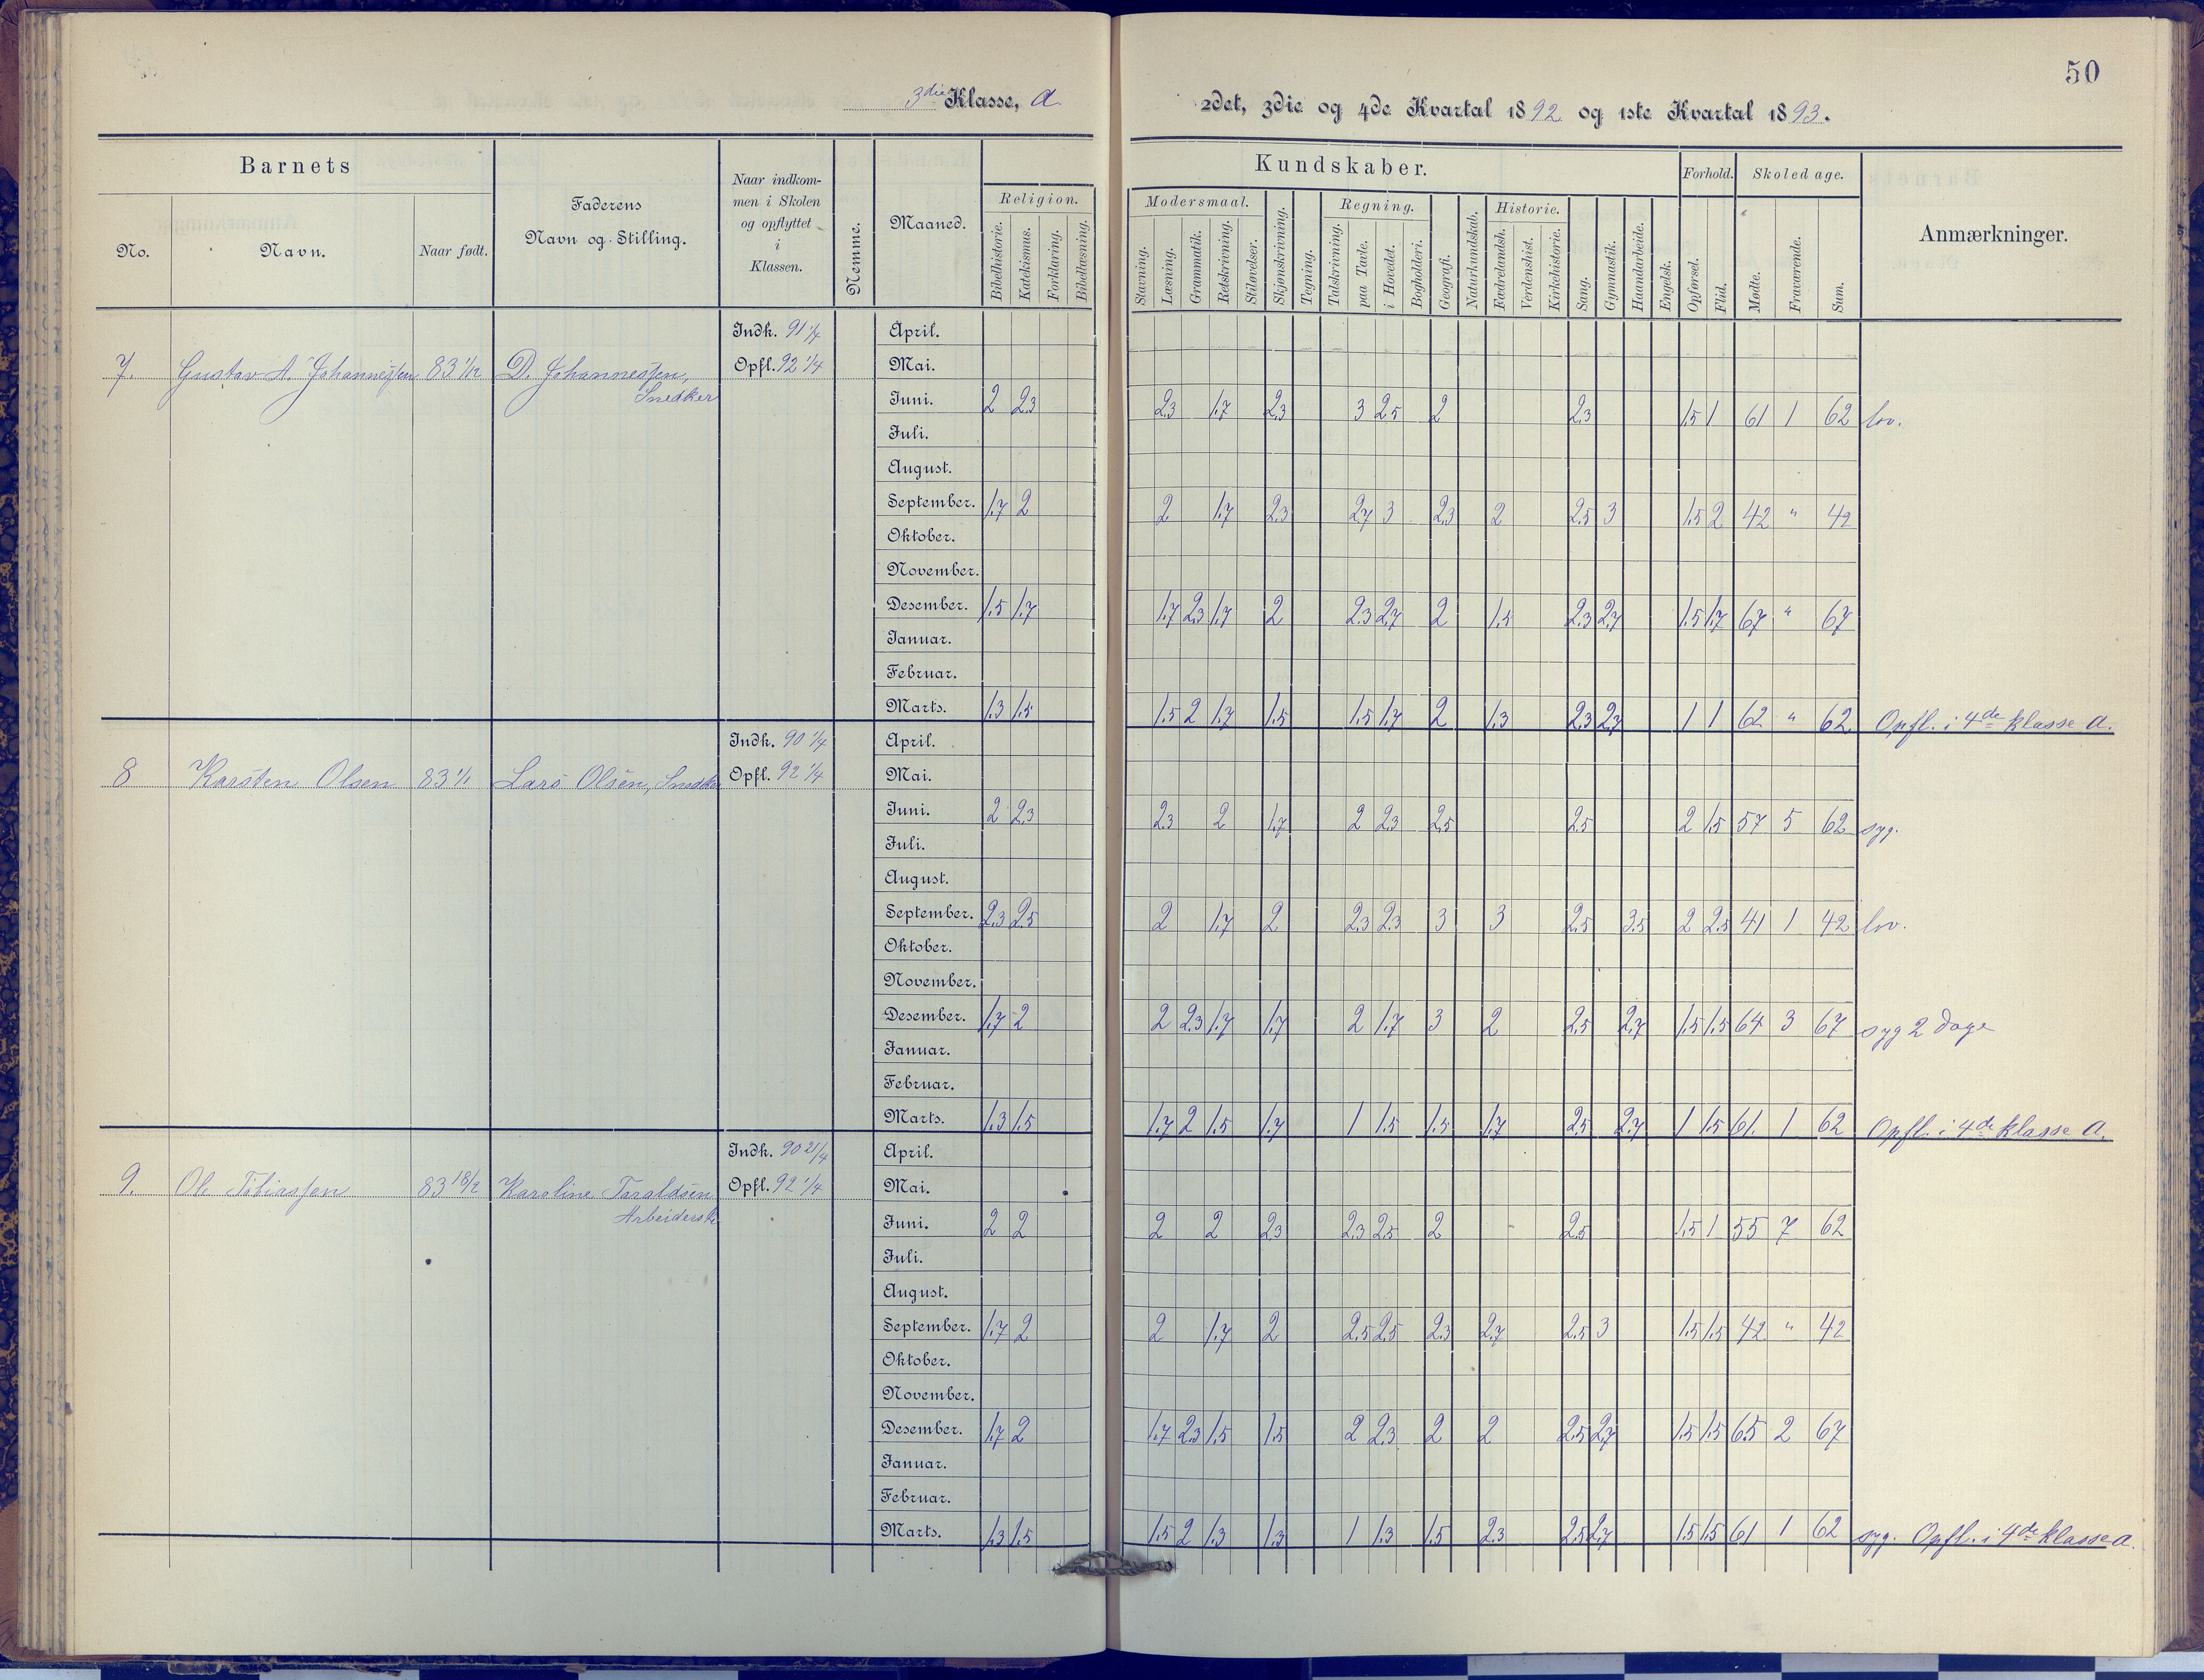 50
3die Klasse, A
2det, 3die og 4de Kvartal 1892 og 1ste Kvartal 1893.
Barnets
No.
Navn.
Naar født.
Faderens
Navn og Stilling.
Naar indkom-
men i Skolen
og opflyttet
i
Klassen.
Nemme.
Maaned.
Kundskaber.
Religion.
Bibelhistorie.
Katekismus.
Forklaring.
Bibellæsning.
Modersmaal.
Stavning.
Læsning.
Grammatik.
Retskrivning.
Stiløvelser.
Skjønskrivning.
Tegning.
Regning.
Talskrivning.
paa Tavle.
i Hovedet.
Bogholderi.
Geografi.
Naturkundskab.
Historie.
Fædrelandsh.
Verdenshist.
Kirkehistorie.
Sang.
Gymnastik.
Haandarbeide.
Engelsk.
Forhold.
Opførsel.
Flid.
Skoledage.
Mødte.
Fraværende.
Sum.
Anmærkninger.
7. Gustav A. Johannessen 83 1/12 D. Johannessen,
Snedker
Indk. 91 1/7
Opfl. 92 1/4
April.
Mai.
Juni. 2 2.3 2.3 1.7 2.3 3 2.5 2 2.3 1.5 1 61 1 62 lov.
Juli.
August.
September. 1.7 2 2 1.7 2.3 2.7 3 2.3 2 2.5 3 1.5 2 42 " 42
Oktober.
November.
Desember. 1.5 1.7 1.7 2.3 1.7 2 2.3 2.7 2 1.5 2.3 2.7 1.5 1.7 67 " 67
Januar.
Februar.
Marts. 1.3 1.5 1.5 2 1.7 1.5 1.5 1.7 2 1.3 2.3 2.7 1 1 62 " 62 Opfl. i 4de klasse A.
8 Karsten Olsen 83 1/1 Lars Olsen, Snedker
Indk. 90 1/4
Opfl. 92 1/4
April.
Mai.
Juni. 2 2.3 2.3 2 1.7 2 2.3 2.5 2.5 2 1.5 57 5 62 syg.
Juli.
August.
September. 2.3 2.5 2 1.7 2 2.3 2.3 3 3 2.5 3.5 2 2.5 41 1 42 lov.
Oktober.
November.
Desember. 1.7 2 2 2.3 1.7 1.7 2 1.7 3 2 2.5 2.7 1.5 1.5 64 3 67 syg 2 Dage
Januar.
Februar.
Marts. 1.3 1.5 1.7 2 1.5 1.7 1 1.5 1.5 1.7 2.5 2.7 1 1.5 61. 1 62 Opfl. i 4de klasse A.
9. Ole Tobiassen 83 18/2 Karoline Taraldsen
Arbeidersk
Indk. 90 21/4
Opfl. 92 1/4
April.
Mai.
Juni. 2 2 2 2 2.3 2.3 2.5 2 2.5 1.5 1 55 7 62
Juli.
August.
September. 1.7 2 2 1.7 2 2.5 2.5 2.3 2.7 2.5 3 1.5 1.5 42 " 42
Oktober.
November.
Desember. 1.7 2 1.7 2.3 1.5 1.5 2 2.3 2 2 2.5 2.7 1.5 1.5 65 2 67
Januar.
Februar.
Marts. 1.3 1.5 1.5 2 1.3 1.3 1 1.3 1.5 2.3 2.5 2.7 1.5 1.5 61 1 62 syg. Opfl. i 4de klasse A.